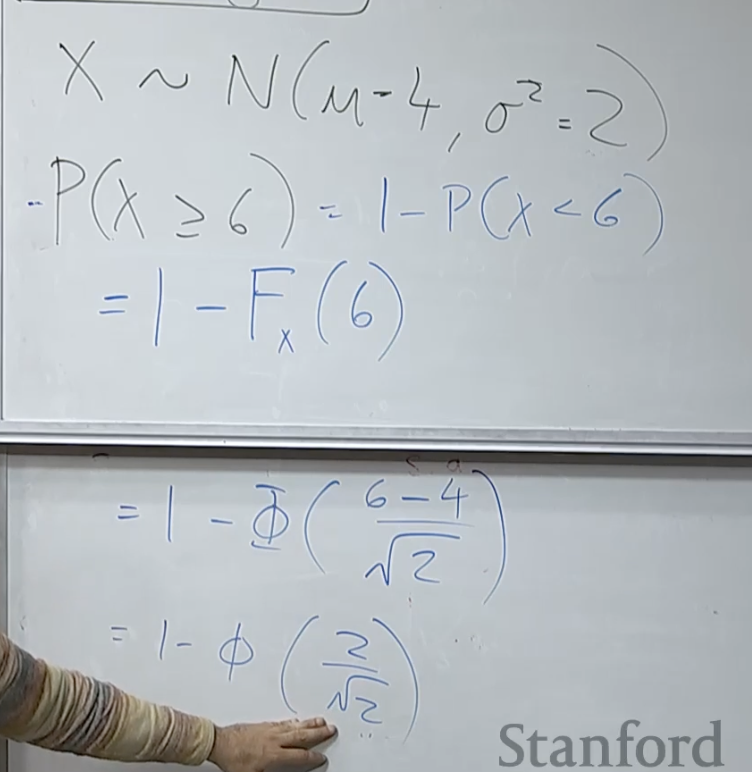 X ~ N(μ - 4, σ² = 2)
P(X ≥ 6) = 1 - P(X < 6)
= 1 - Fₓ(6)
= 1 - Φ((6 - 4)/√2)
= 1 - ϕ(2/√2)
Stanford